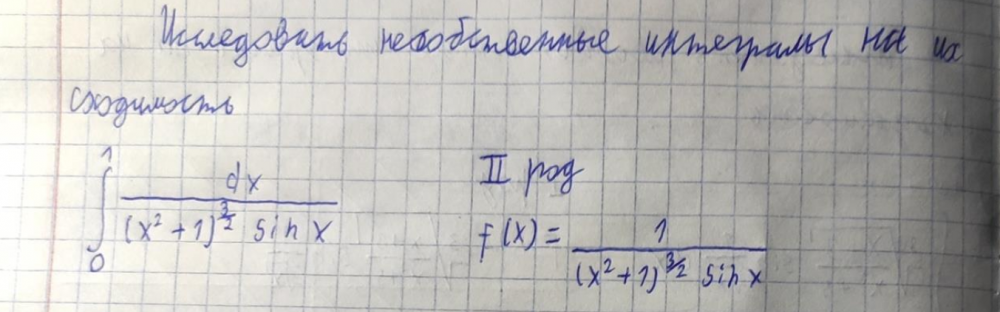 Исследовать несобственные интегралы на их
сходимость
∫₀¹ dx / ((x² + 1)^(3/2) sin x)
II род
f(x) = 1 / ((x² + 1)^(3/2) sin x)